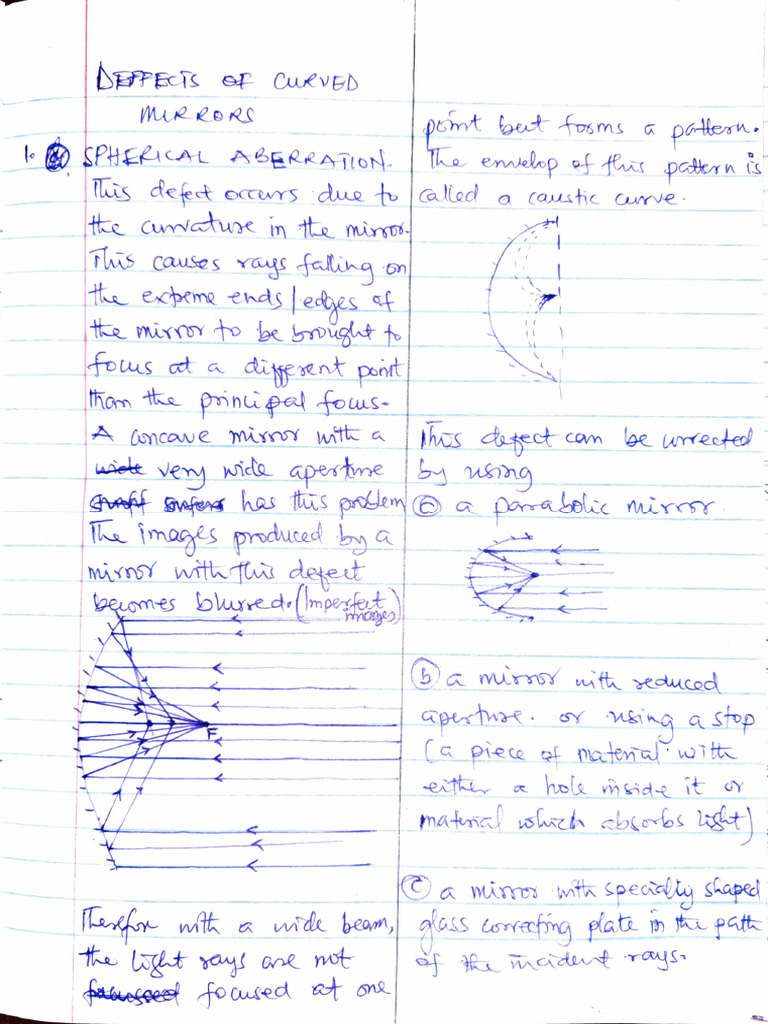 DEFFECTS OF CURVED
MIRRORS
1. SPHERICAL ABERRATION.
This defect occurs due to
the curvature in the mirror.
This causes rays falling on
the extreme ends/edges of
the mirror to be brought to
focus at a different point
than the principal focus.
A concave mirror with a
wide very wide aperture
has this problem
The images produced by a
mirror with this defect
becomes blurred. (Imperfect
images)
F
Therefor with a wide beam,
the light rays are not
focussed focused at one
point but forms a pattern.
The envelop of this pattern is
called a caustic curve.
This defect can be corrected
by using
(a) a parabolic mirror.
(b) a mirror with reduced
aperture. or using a stop
(a piece of material with
either a hole inside it or
material which absorbs light)
(c) a mirror with specially shaped
glass correcting plate in the path
of the incident rays.